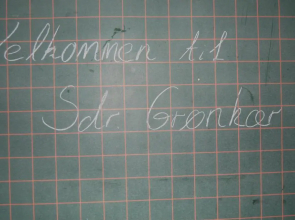 Velkommen til
Sdr Grønkær